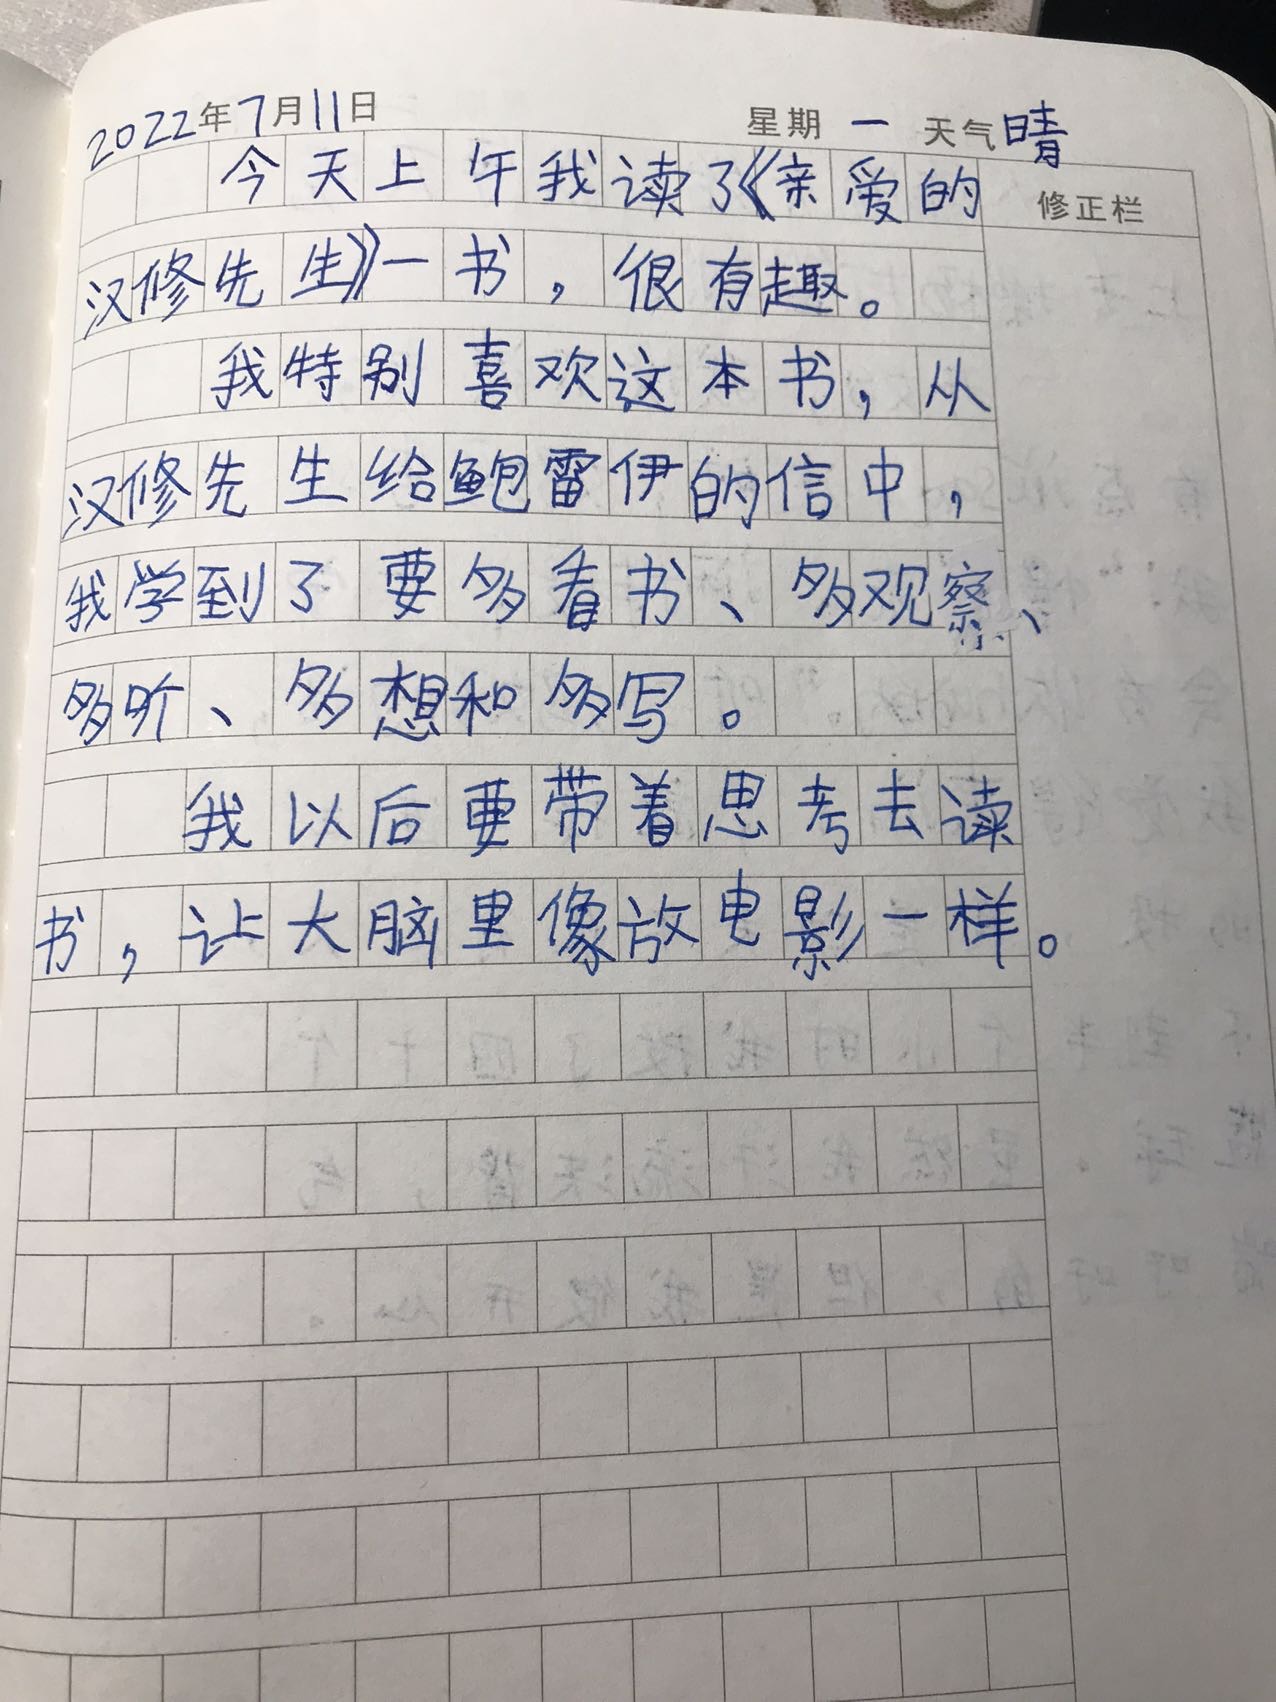 2022年7月11日 星期 一 天气 晴
修正栏
今天上午我读了《亲爱的
汉修先生》一书，很有趣。
我特别喜欢这本书，从
汉修先生给鲍雷伊的信中，
我学到了要多看书、多观察、
多听、多想和多写。
我以后要带着思考去读
书，让大脑里像放电影一样。